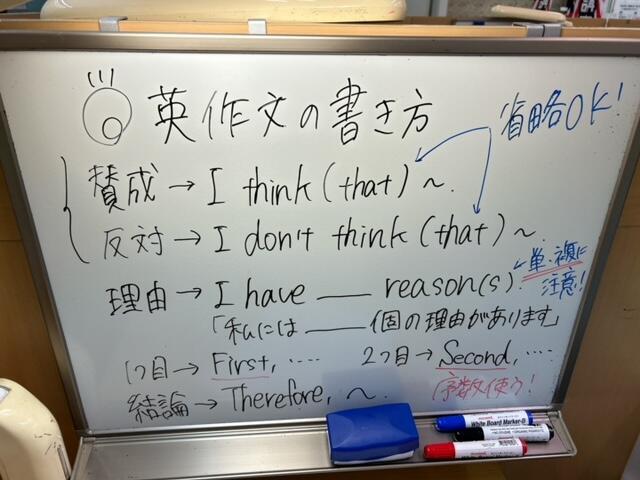 英作文の書き方
省略OK!
賛成→I think (that) ~.
反対→I don't think (that) ~
理由→I have ___ reason(s).
単・複に
注意!
「私には ___ 個の理由があります」
1つ目→First, ‥‥ 2つ目→Second, ‥‥
結論→Therefore, ~.
序数使う!
White Board Marker